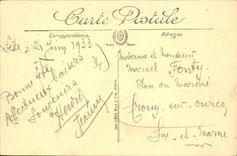 Carte Postale
Correspondance
Adresse
Sète le 24 Juin 1933
Bonne fête
Affectueux baisers
Souvenirs
Madame et Monsieur
Marcel
Place du Marché
Crouy-sur-Ourcq
et Marne